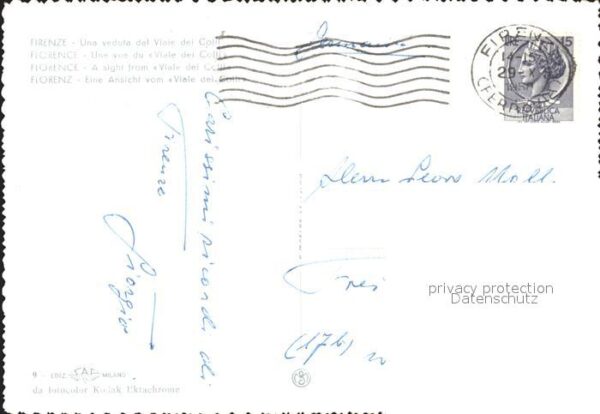 FIRENZE - Una veduta dal Viale dei Colli
FLORENCE - Une vue du «Viale dei Colli»
FLORENCE - A sight from «Viale dei Colli»
FLORENZ - Eine Ansicht vom «Viale dei Colli»
FIRENZE
(FERROVIA)
LIRE 15
ITALIANA
Carissimi ricordi di
Firenze
Giorgio
Herrn Leon Moll
(17b)
privacy protection
Datenschutz
9 - EDIZ. S.A.F. MILANO
da fotocolor Kodak Ektachrome